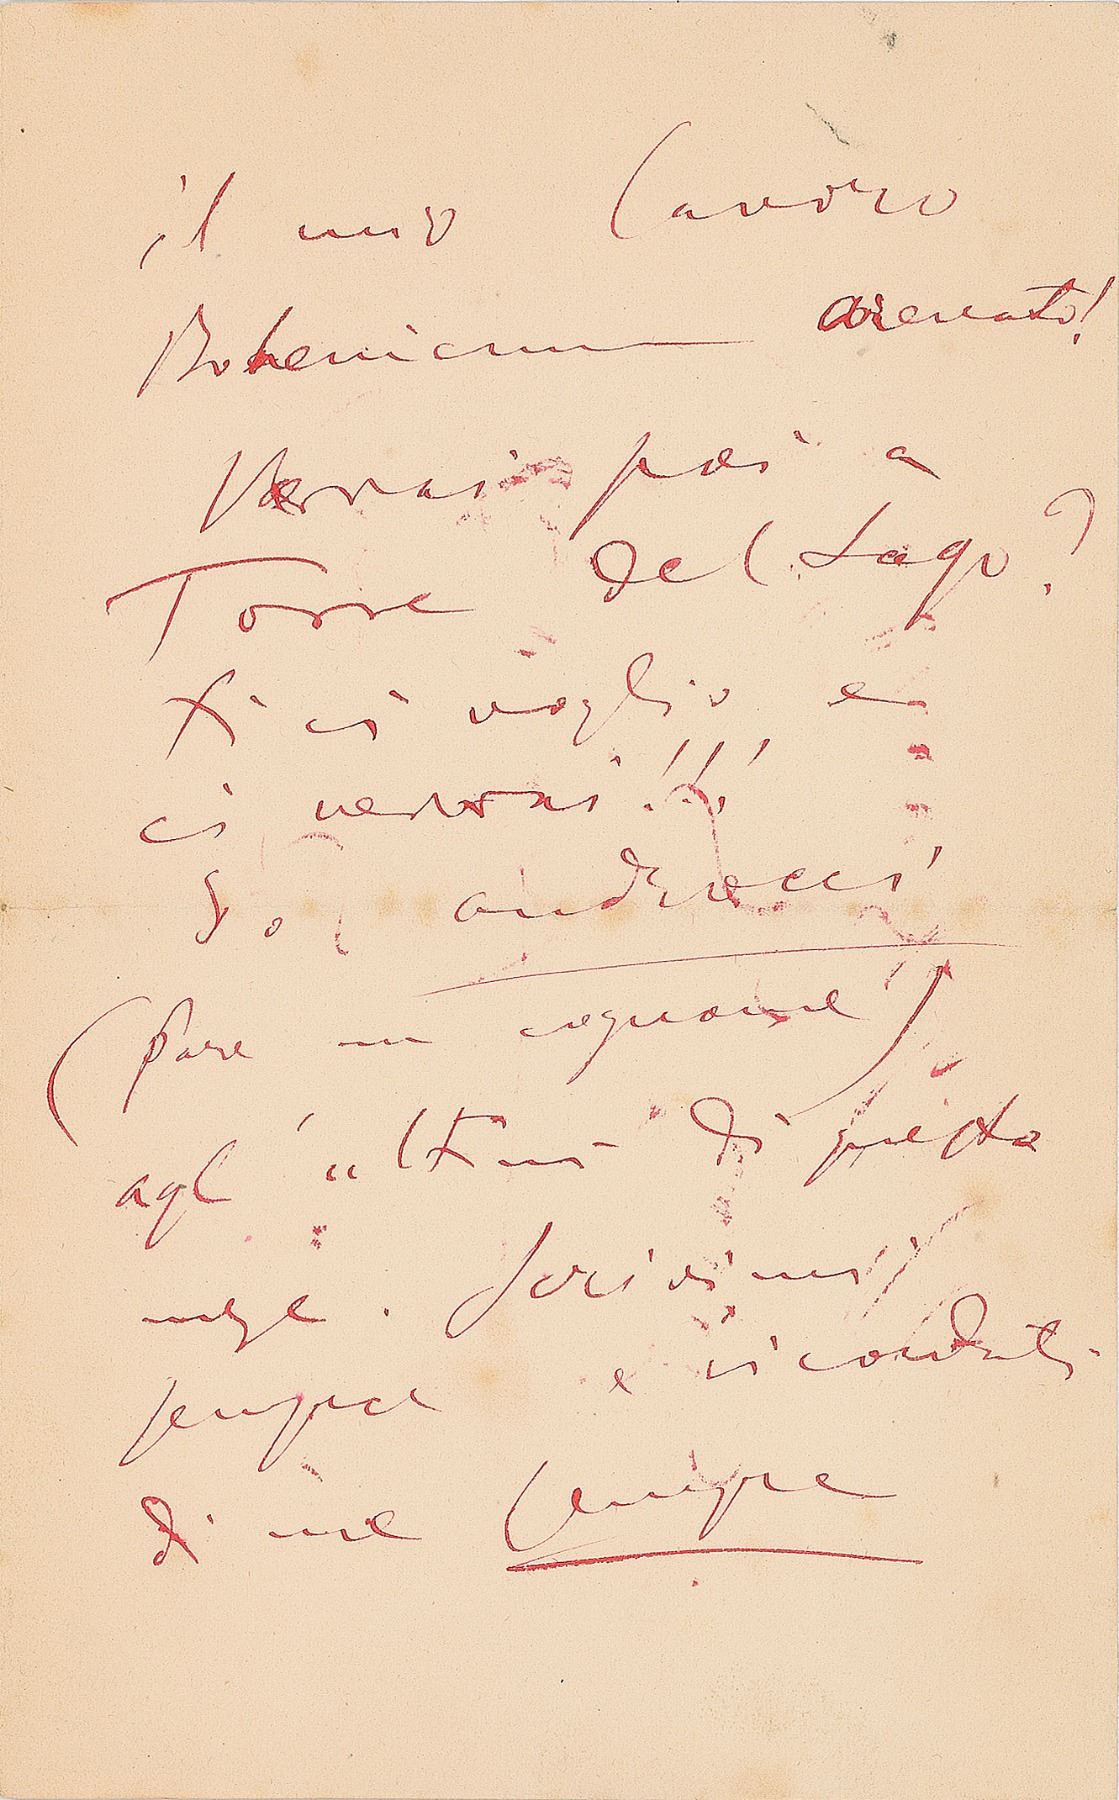 il mio lavoro
Bohemienne arenato!
Verrai poi a
Torre del Lago?
Ti ci voglio e
ci verrai!!!
Io androcci
(pare un cognome)
agl'ultimi di questo
mese. Scrivimi
sempre e ricordati
di me sempre